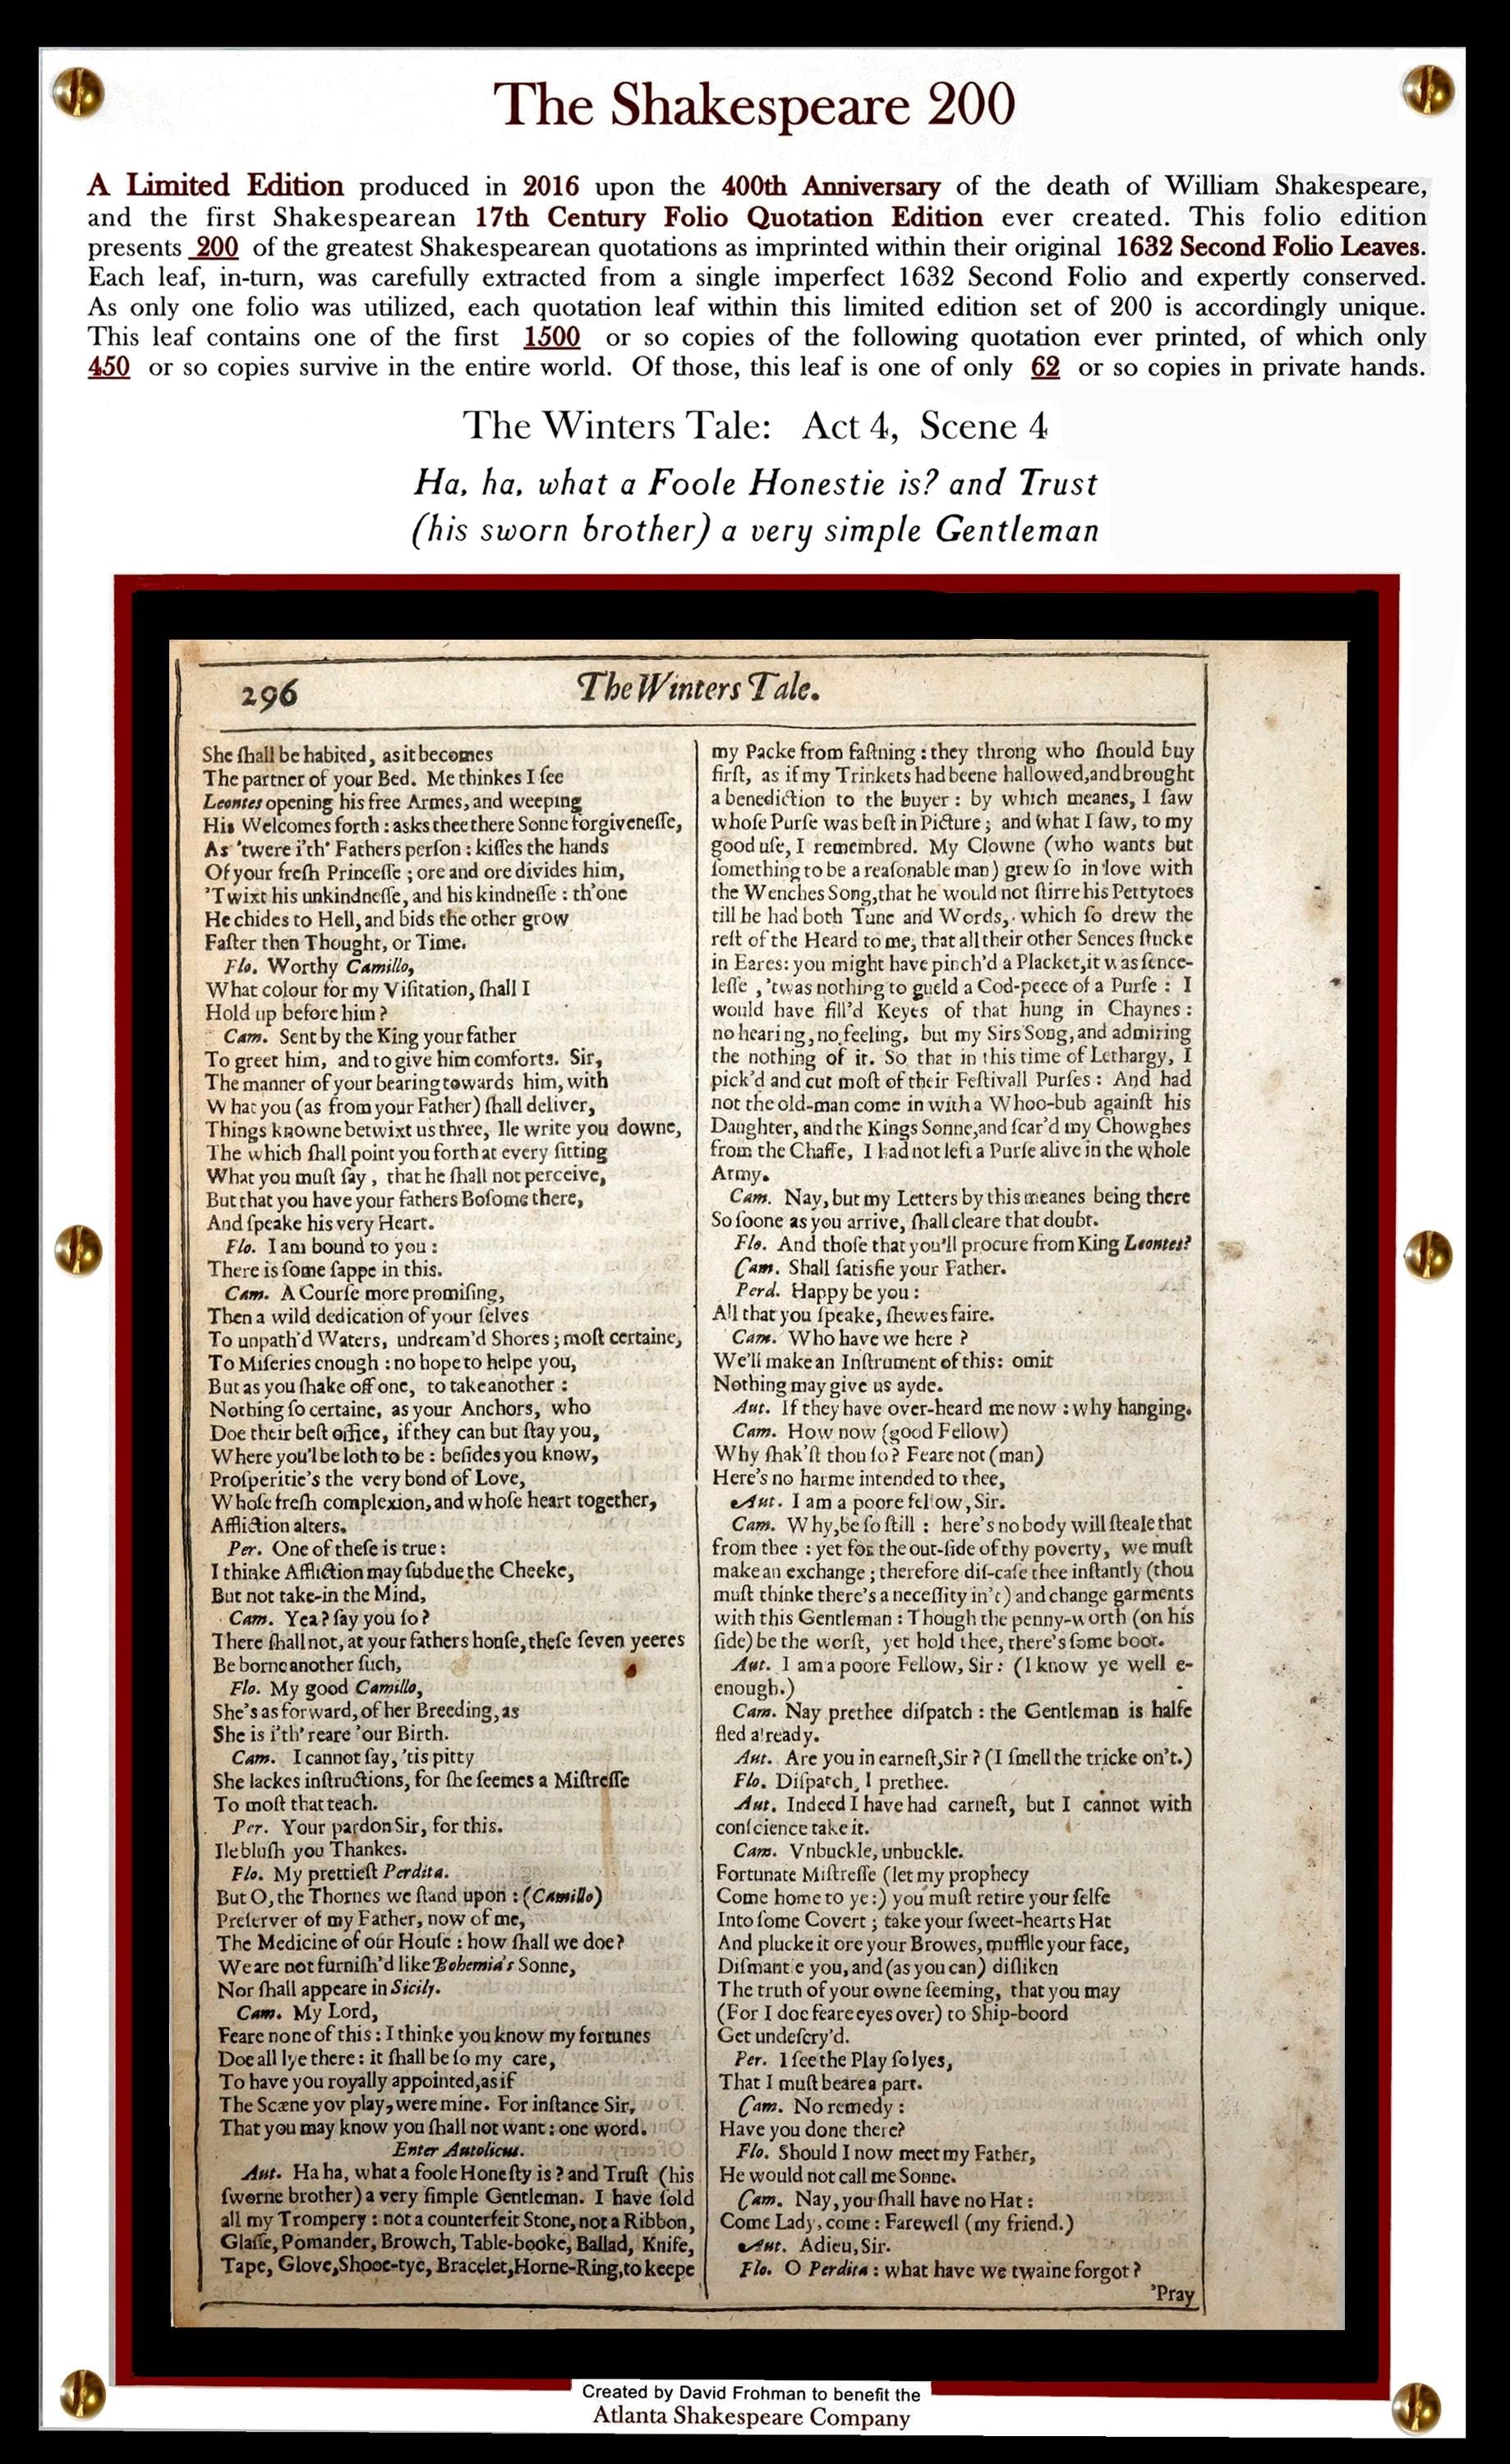 The Shakespeare 200
A Limited Edition produced in 2016 upon the 400th Anniversary of the death of William Shakespeare,
and the first Shakespearean 17th Century Folio Quotation Edition ever created. This folio edition
presents 200 of the greatest Shakespearean quotations as imprinted within their original 1632 Second Folio Leaves.
Each leaf, in-turn, was carefully extracted from a single imperfect 1632 Second Folio and expertly conserved.
As only one folio was utilized, each quotation leaf within this limited edition set of 200 is accordingly unique.
This leaf contains one of the first 1500 or so copies of the following quotation ever printed, of which only
450 or so copies survive in the entire world. Of those, this leaf is one of only 62 or so copies in private hands.
The Winters Tale: Act 4, Scene 4
Ha, ha, what a Foole Honestie is? and Trust
(his sworn brother) a very simple Gentleman
296
The Winters Tale.
She ſhall be habited, as it becomes
The partner of your Bed. Me thinkes I ſee
Leontes opening his free Armes, and weeping
His Welcomes forth : asks thee there Sonne forgiveneſſe,
As 'twere i'th' Fathers perſon : kiſſes the hands
Of your freſh Princeſſe ; ore and ore divides him,
'Twixt his unkindneſſe, and his kindneſſe : th'one
He chides to Hell, and bids the other grow
Faſter then Thought, or Time.
Flo. Worthy Camillo,
What colour for my Viſitation, ſhall I
Hold up before him ?
Cam. Sent by the King your father
To greet him, and to give him comforts. Sir,
The manner of your bearing towards him, with
What you (as from your Father) ſhall deliver,
Things knowne betwixt us three, Ile write you downe,
The which ſhall point you forth at every ſitting
What you muſt ſay , that he ſhall not perceive,
But that you have your fathers Boſome there,
And ſpeake his very Heart.
Flo. I am bound to you :
There is ſome ſappe in this.
Cam. A Courſe more promiſing,
Then a wild dedication of your ſelves
To unpath'd Waters, undream'd Shores ; moſt certaine,
To Miſeries enough : no hope to helpe you,
But as you ſhake off one, to take another :
Nothing ſo certaine, as your Anchors, who
Doe their beſt office, if they can but ſtay you,
Where you'l be loth to be : beſides you know,
Proſperitie's the very bond of Love,
Whoſe freſh complexion, and whoſe heart together,
Affliction alters.
Per. One of theſe is true :
I thinke Affliction may ſubdue the Cheeke,
But not take-in the Mind,
Cam. Yea ? ſay you ſo ?
There ſhall not, at your fathers houſe, theſe ſeven yeeres
Be borne another ſuch,
Flo. My good Camillo,
She's as forward, of her Breeding, as
She is i'th' reare 'our Birth.
Cam. I cannot ſay, 'tis pitty
She lackes inſtructions, for ſhe ſeemes a Miſtreſſe
To moſt that teach.
Per. Your pardon Sir, for this.
Ile bluſh you Thankes.
Flo. My prettieſt Perdita.
But O, the Thornes we ſtand upon : (Camillo)
Preſerver of my Father, now of me,
The Medicine of our Houſe : how ſhall we doe ?
We are not furniſh'd like Bohemia's Sonne,
Nor ſhall appeare in Sicily.
Cam. My Lord,
Feare none of this : I thinke you know my fortunes
Doe all lye there : it ſhall be ſo my care,
To have you royally appointed, as if
The Scæne yov play, were mine. For inſtance Sir,
That you may know you ſhall not want : one word.
Enter Autolicus.
Aut. Ha ha, what a foole Honeſty is ? and Truſt (his
ſworne brother) a very ſimple Gentleman. I have ſold
all my Trompery : not a counterfeit Stone, not a Ribbon,
Glaſſe, Pomander, Browch, Table-booke, Ballad, Knife,
Tape, Glove, Shooe-tye, Bracelet, Horne-Ring, to keepe
my Packe from faſtning : they throng who ſhould buy
firſt, as if my Trinkets had beene hallowed, and brought
a benediction to the buyer : by which meanes, I ſaw
whoſe Purſe was beſt in Picture ; and what I ſaw, to my
good uſe, I remembred. My Clowne (who wants but
ſomething to be a reaſonable man) grew ſo in love with
the Wenches Song, that he would not ſtirre his Pettytoes
till he had both Tune and Words, which ſo drew the
reſt of the Heard to me, that all their other Sences ſtucke
in Eares : you might have pinch'd a Placket, it was ſence-
leſſe , 'twas nothing to gueld a Cod-peece of a Purſe : I
would have fill'd Keyes of that hung in Chaynes :
no hearing, no feeling, but my Sirs Song, and admiring
the nothing of it. So that in this time of Lethargy, I
pick'd and cut moſt of their Feſtivall Purſes : And had
not the old-man come in with a Whoo-bub againſt his
Daughter, and the Kings Sonne, and ſcar'd my Chowghes
from the Chaffe, I had not left a Purſe alive in the whole
Army.
Cam. Nay, but my Letters by this meanes being there
So ſoone as you arrive, ſhall cleare that doubt.
Flo. And thoſe that you'll procure from King Leontes?
Cam. Shall ſatisfie your Father.
Perd. Happy be you :
All that you ſpeake, ſhewes faire.
Cam. Who have we here ?
We'll make an Inſtrument of this : omit
Nothing may give us ayde.
Aut. If they have over-heard me now : why hanging.
Cam. How now (good Fellow)
Why ſhak'ſt thou ſo ? Feare not (man)
Here's no harme intended to thee,
Aut. I am a poore fellow, Sir.
Cam. Why, be ſo ſtill : here's nobody will ſteale that
from thee : yet for the out-ſide of thy poverty, we muſt
make an exchange ; therefore diſ-caſe thee inſtantly (thou
muſt thinke there's a neceſſity in't) and change garments
with this Gentleman : Though the penny-worth (on his
ſide) be the worſt, yet hold thee, there's ſome boot.
Aut. I am a poore Fellow, Sir : (I know ye well e-
enough.)
Cam. Nay prethee diſpatch : the Gentleman is halfe
fled already.
Aut. Are you in earneſt, Sir ? (I ſmell the tricke on't.)
Flo. Diſpatch, I prethee.
Aut. Indeed I have had earneſt, but I cannot with
conſcience take it.
Cam. Vnbuckle, unbuckle.
Fortunate Miſtreſſe (let my prophecy
Come home to ye :) you muſt retire your ſelfe
Into ſome Covert ; take your ſweet-hearts Hat
And plucke it ore your Browes, muffle your face,
Diſmantle you, and (as you can) diſliken
The truth of your owne ſeeming, that you may
(For I doe feare eyes over) to Ship-boord
Get undeſcry'd.
Per. I ſee the Play ſo lyes,
That I muſt beare a part.
Cam. No remedy :
Have you done there?
Flo. Should I now meet my Father,
He would not call me Sonne.
Cam. Nay, you ſhall have no Hat :
Come Lady, come : Farewell (my friend.)
Aut. Adieu, Sir.
Flo. O Perdita : what have we twaine forgot ?
'Pray
Created by David Frohman to benefit the
Atlanta Shakespeare Company